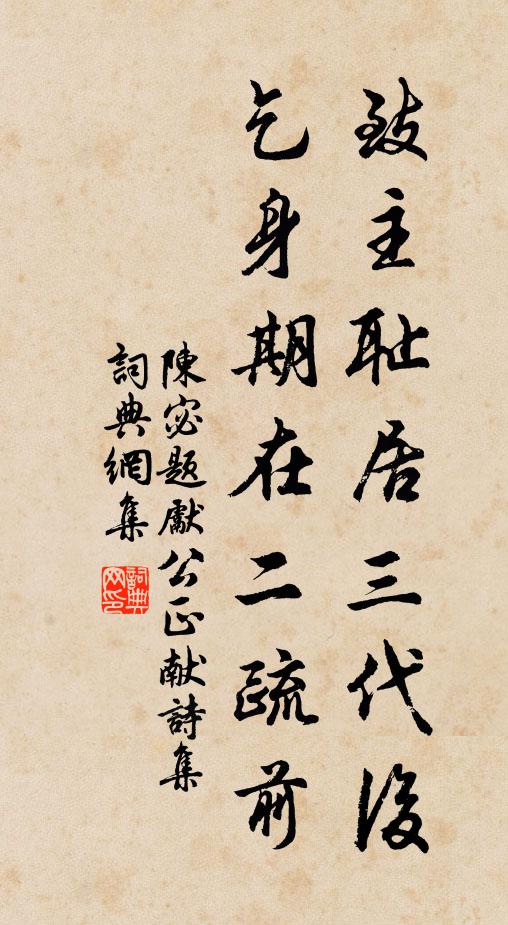 致主耻居三代後
乞身期在二疏前
陳宓題獻公正献詩集
詞典網集
詞典
网印